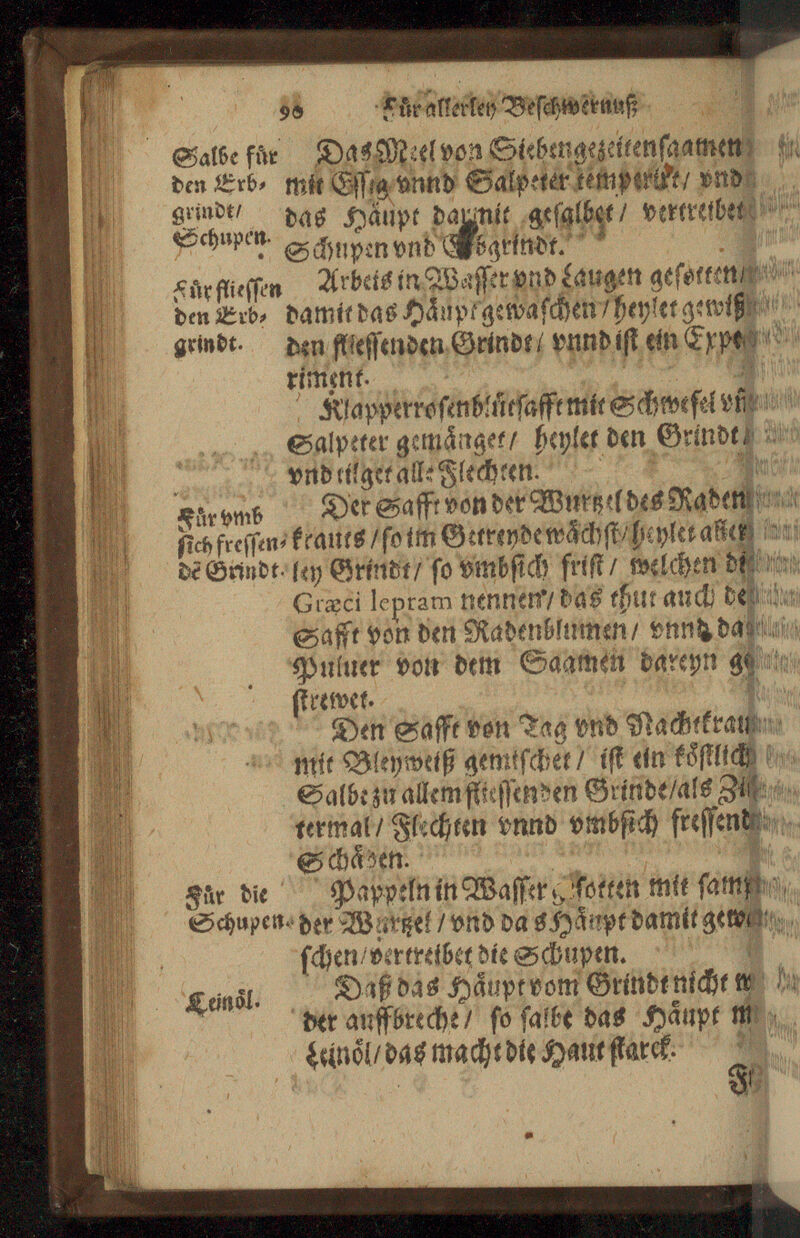 98 Fůr allerley Beſchwernuß
Salbe für
den Erb-
grindt/
Schupen.
Das Meel von Siebengezeitenſaamen
mit Eſſig vnnd Salpeter temperirt/ vnd
das Håupt darmit geſalbet/ vertreibet
Schupen vnd Erbgrindt.
Für flieſſen
den Erb-
grindt.
Arbeis in Waſſer vnd Laugen geſotten/
damit das Håupt gewaſchen/ heylet gewiß
den flieſſenden Grindt/ vnnd iſt ein Expe
riment.
Klapperroſenblůtſafft mit Schwefel vñ
Salpeter gemånget/ heylet den Grindt/
vnd tilget alle Flechten.
Für vmb
ſich freſſen-
dẽ Grindt.
Der Safft von der Wurtzel des Raden
krauts/ ſo im Getreyde wåchſt/ heylet aller
ley Grindt/ ſo vmbſich friſt/ welchen di
Græci lepram nennen/ das thut auch de
Safft von den Radenblumen/ vnnd da
Puluer von dem Saamen dareyn ge
ſtrewet.
Den Safft von Tag vnd Nachtkrau
mit Bleyweiß gemiſchet/ iſt ein kőſtlich
Salbe zu allem flieſſenden Grinde/ als Zit
termal/ Flechten vnnd vmbſich freſſend
Schåden.
Für die
Schupen.
Pappeln in Waſſer geſotten mit ſampt
der Wurtzel/ vnd das Håupt damit gewa
ſchen/ vertreibet die Schupen.
Leinől.
Daß das Håupt vom Grindt nicht w
der auffbreche/ ſo ſalbe das Håupt m
Leinől/ das macht die Haut ſtarck.